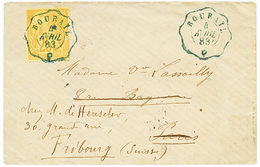 BOURAIL
4
AVRIL
83
BOURAIL
4
AVRIL
83
Madame Vve Cassailly
Paris
chez M. de Heuseler
30, grand rue,
Fribourg (Suisse)